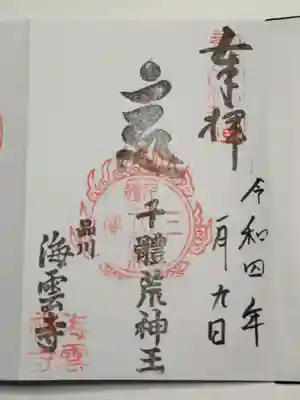 奉拝
令和四年
一月九日
千體荒神王
品川
海雲寺